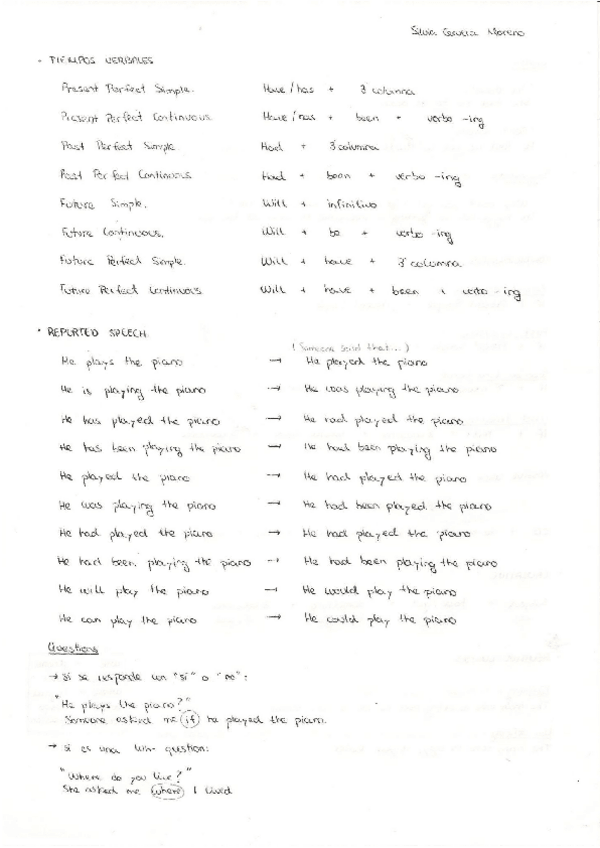 Silvia Cervera Moreno
• TIEMPOS VERBALES
Present Perfect Simple. Have/has + 3ª columna
Present Perfect Continuous. Have/has + been + verbo -ing
Past Perfect Simple. Had + 3ª columna
Past Perfect Continuous Had + been + verbo -ing
Future Simple. Will + infinitivo
Future Continuous. Will + be + verbo -ing
Future Perfect Simple. Will + have + 3ª columna
Future Perfect Continuous Will + have + been + verbo -ing
• REPORTED SPEECH.
(Someone said that...)
He plays the piano → He played the piano
He is playing the piano → He was playing the piano
He has played the piano → He had played the piano
He has been playing the piano → He had been playing the piano
He played the piano → He had played the piano
He was playing the piano → He had been played the piano
He had played the piano → He had played the piano
He had been playing the piano → He had been playing the piano
He will play the piano → He would play the piano
He can play the piano → He could play the piano
Questions
→ Si se responde un "si" o "no":
"He plays the piano?"
Someone asked me if he played the piano.
→ Si es una wh- qustion:
"Where do you live?"
She asked me where I lived